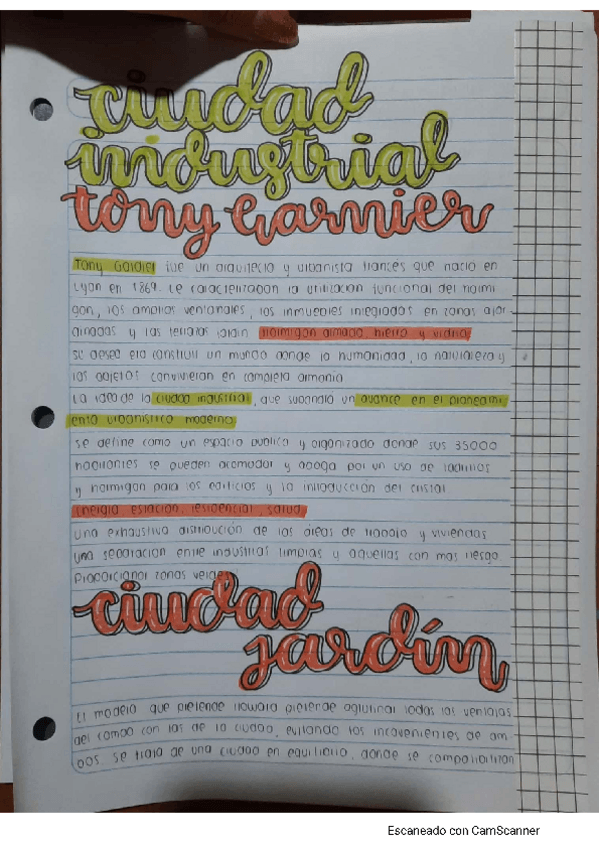 ciudad
industrial
tony Garnier
Tony Gardiel fue un arquitecto y urbanista frances que nacio en
Lyon en 1869. Le caracterizaban la utilizacion funcional del hormi
gon, los amplios ventanales, los inmuebles integrados en zonas ajar
dinadas y las terrazas jardin hormigon armado, hierro y vidrio
su deseo era construir un mundo donde la humanidad, la naturaleza y
los objetos convivieran en completa armonia
La idea de la ciudad industrial, que supondio un avance en el planeami
ento urbanistico moderno
se define como un espacio publico y organizado donde sus 35000
habitantes se pueden acomodar y aboga por un uso de ladrillos
y hormigon para los edificios y la introduccion del cristal
Energia estacion, residencial, salud
una exhaustiva distribucion de las áreas de trabajo y viviendas
una separacion entre industrias limpias y aquellas con mas riesgo
Proporcionar zonas verdes
ciudad
jardín
El modelo que pretende Howard pretende aglutinar todas las ventajas
del campo con las de la ciudad, evitando los inconvenientes de am
bos. Se trata de una ciudad en equilibrio, donde se compatibilizan
Escaneado con CamScanner